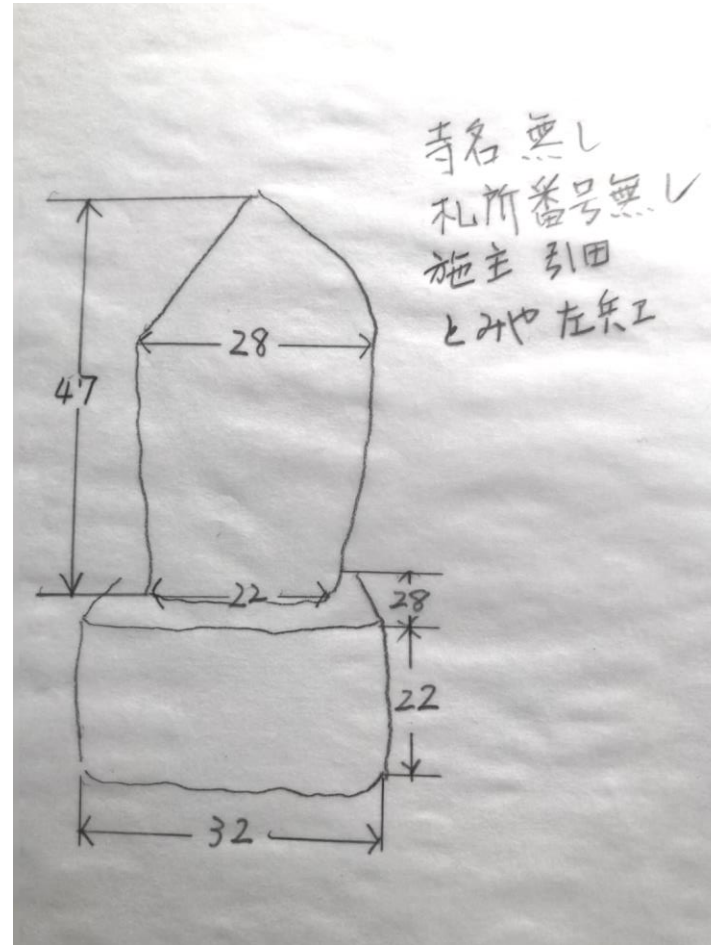 寺名 無し
札所番号無し
施主 引田
とみや 左兵エ
47
28
22
28
22
32